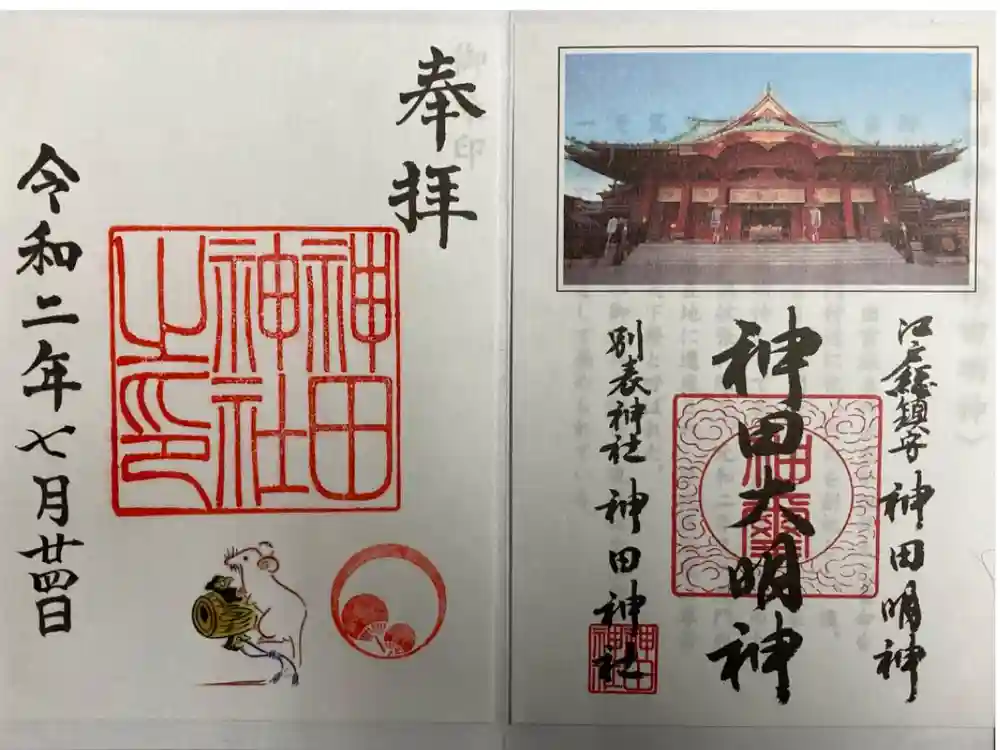 江戸總鎮守 神田明神
神田大明神
別表神社 神田神社
神田
神社
奉拝
神田
神社
之印
令和二年七月廿四日